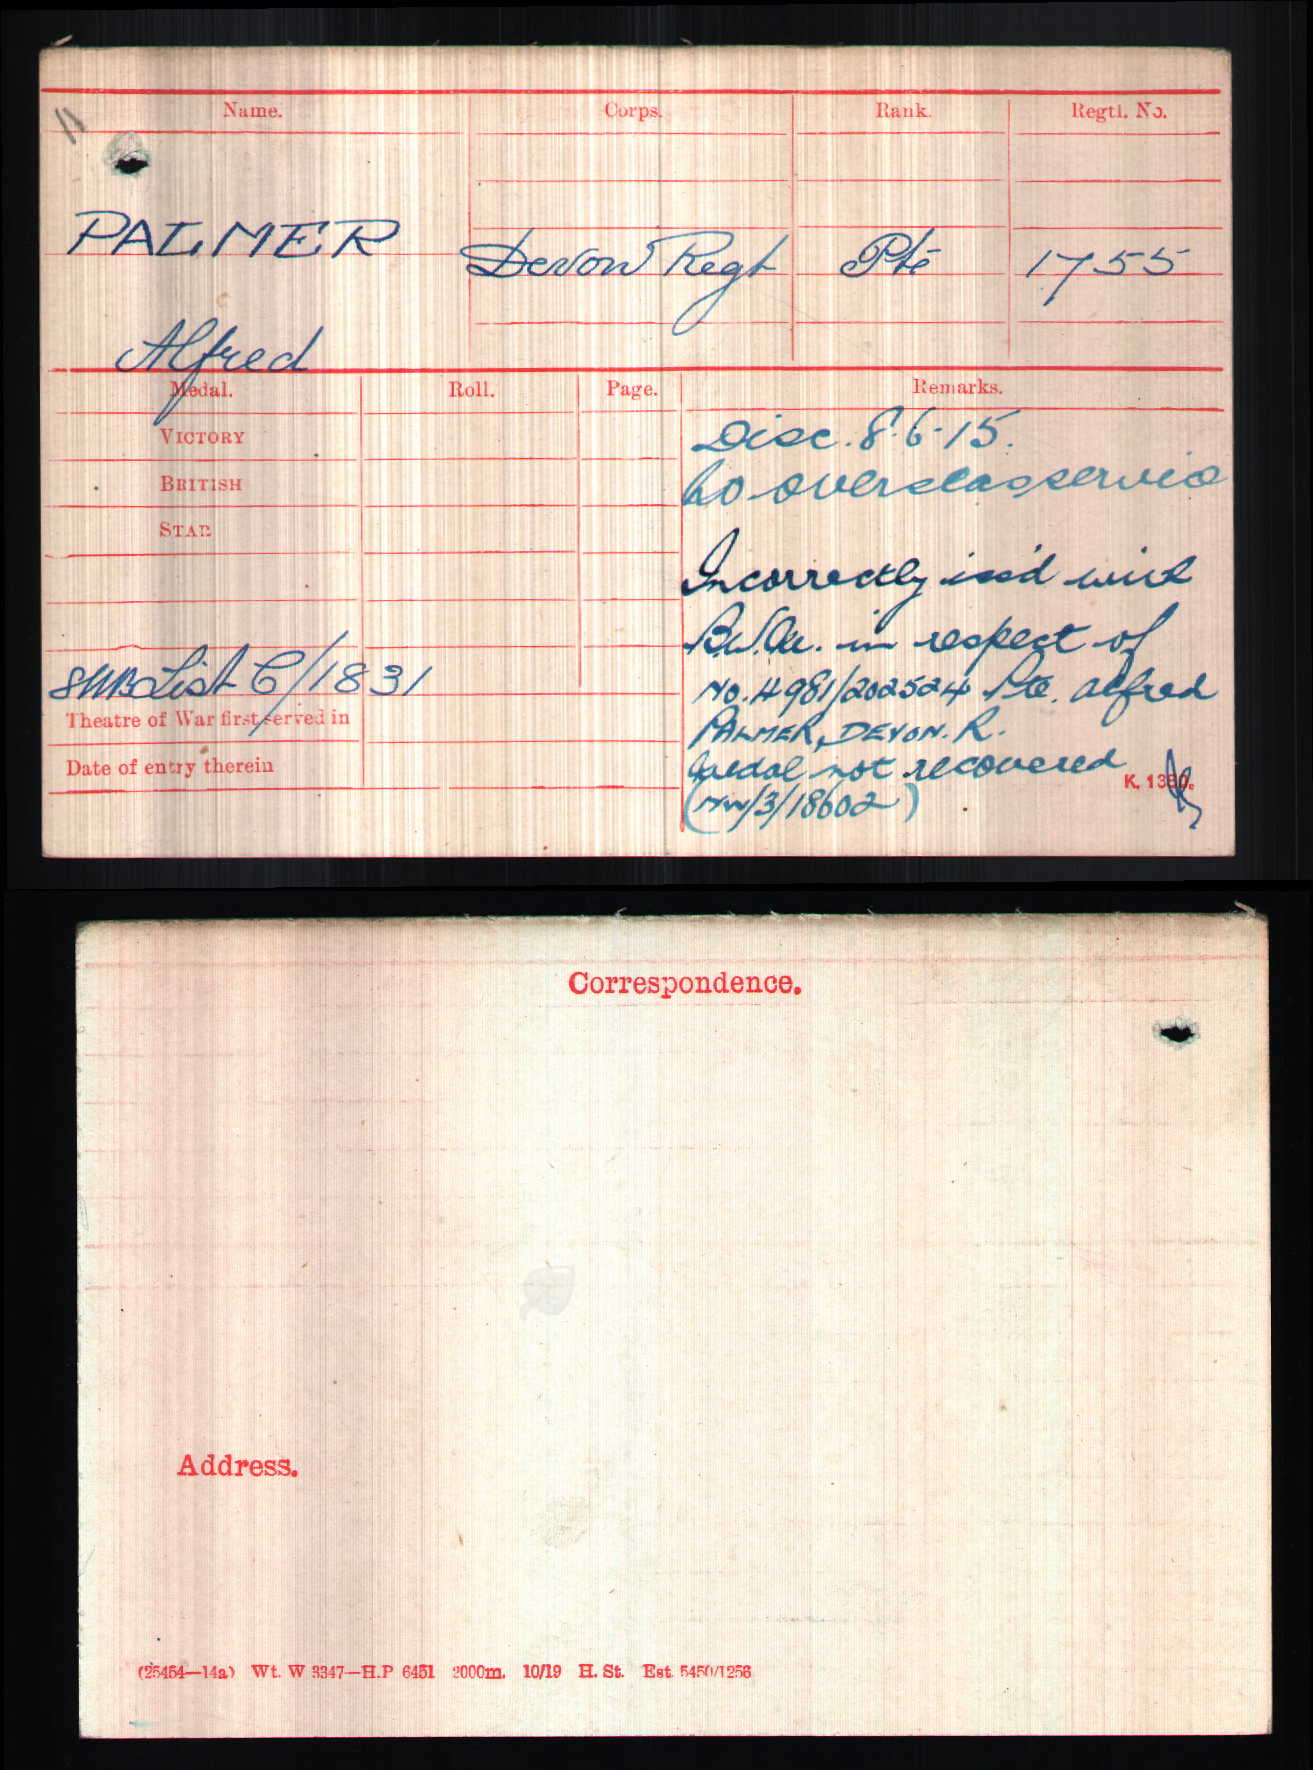 Name. Corps. Rank. Regtl. No.
PALMER Devon Regt Pte 1755
Alfred
Medal. Roll. Page. Remarks.
VICTORY
BRITISH
STAR
Disc. 8.6.15.
No overseas service
Incorrectly iss'd with
B.W.M. in respect of
No. 4981/202524 Pte. Alfred
PALMER, DEVON. R.
Medal not recovered
(NW/3/18602)
SWB List C/1831
Theatre of War first served in
Date of entry therein
K. 1380.
Correspondence.
Address.
(25454—14a) Wt. W 3347—H.P 6451 2000m. 10/19 H. St. Est. 5450/1256